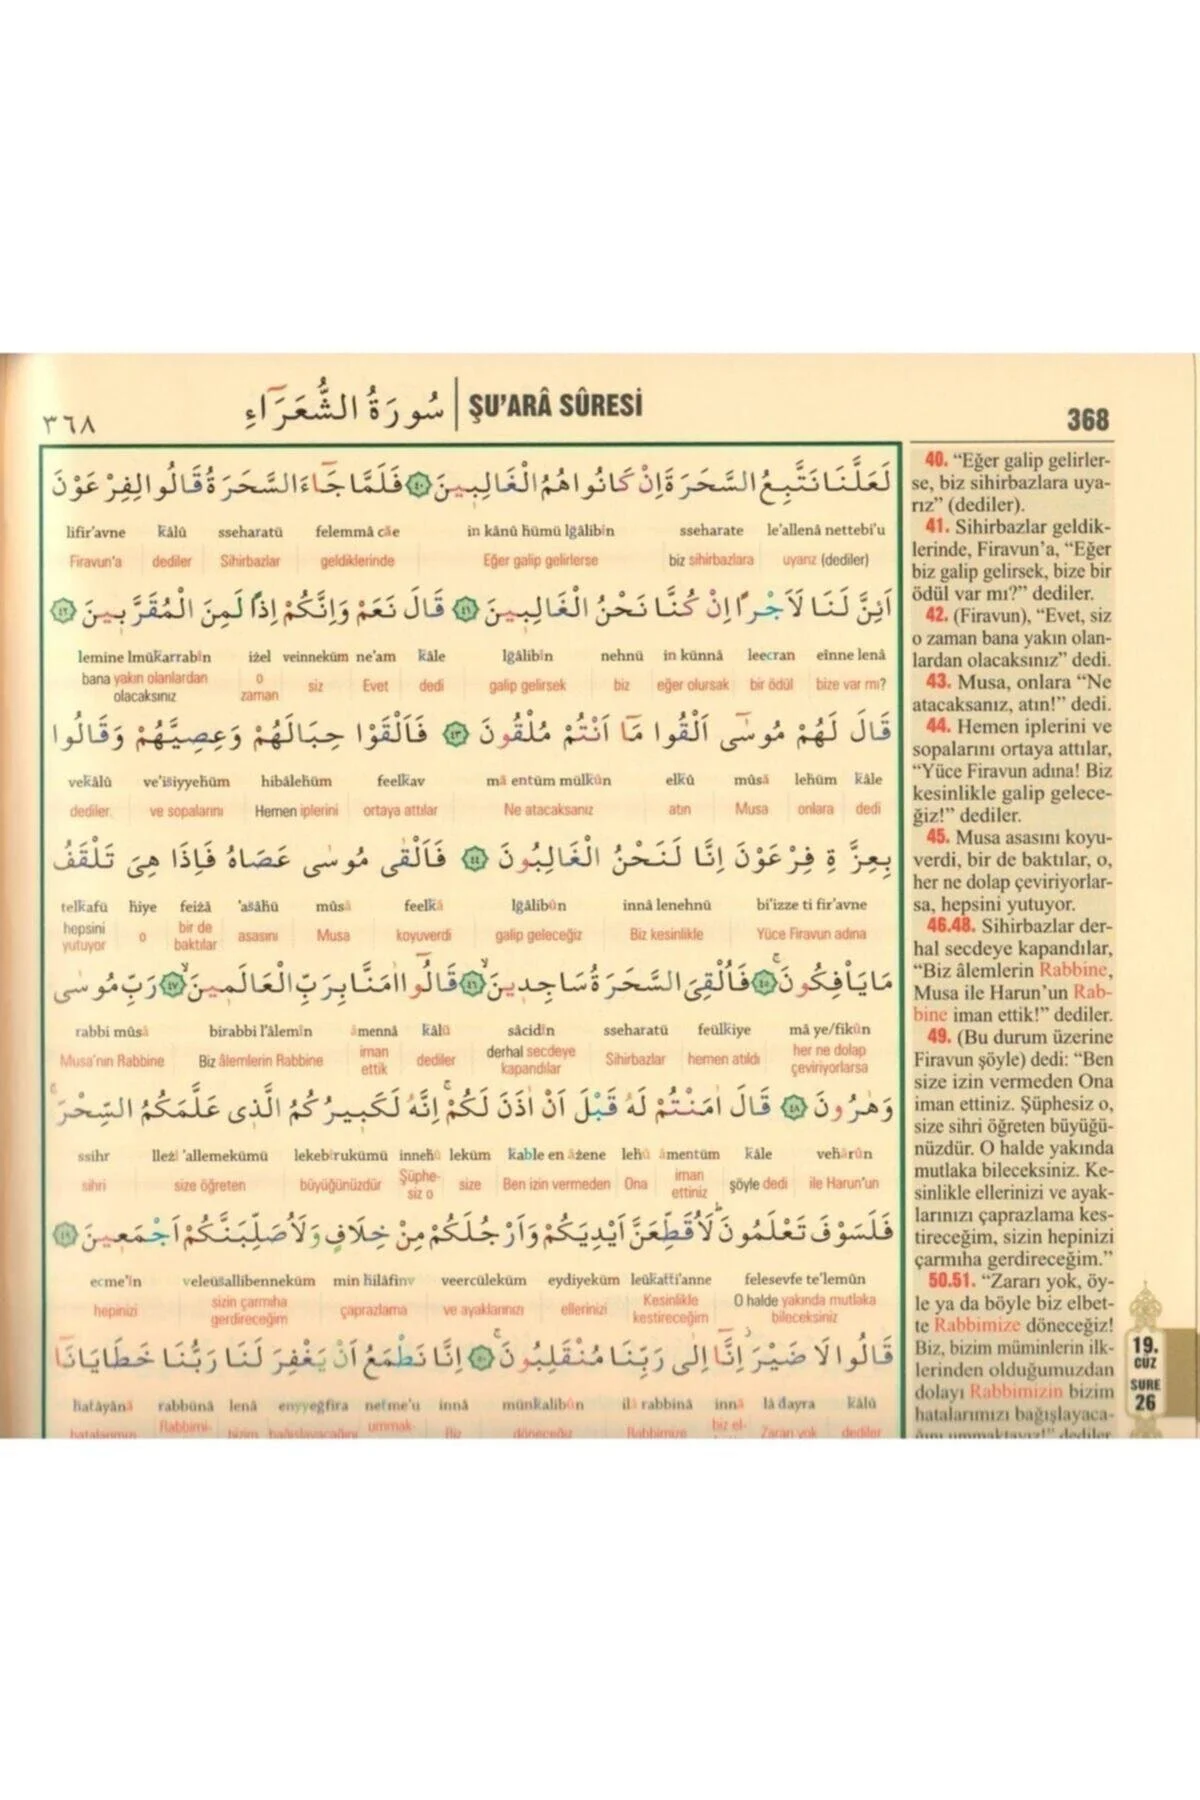 ٣٦٨
سُورَةُ الشُّعَرَاءِ | ŞU'ARÂ SÛRESİ
368
لَعَلَّنَا نَتَّبِعُ السَّحَرَةَ اِنْ كَانُوا هُمُ الْغَالِبِينَ ﴿٤٠﴾ فَلَمَّا جَاءَ السَّحَرَةُ قَالُوا لِفِرْعَوْنَ
lifir'avne kâlû sseharatü felemmâ câe in kânû hümü lğâlibîn sseharate le'allenâ nettebi'u
Firavun'a dediler Sihirbazlar geldiklerinde Eğer galip gelirlerse biz sihirbazlara uyarız (dediler)
اَئِنَّ لَنَا لَاَجْرًا اِنْ كُنَّا نَحْنُ الْغَالِبِينَ ﴿٤١﴾ قَالَ نَعَمْ وَاِنَّكُمْ اِذًا لَمِنَ الْمُقَرَّبِينَ ﴿٤٢﴾
lemine lmükarrabîn iżel veinneküm ne'am kâle lğâlibîn nehnü in künnâ leecran einne lenâ
bana yakın olanlardan olacaksınız o zaman siz Evet dedi galip gelirsek biz eğer olursak bir ödül bize var mı?
قَالَ لَهُمْ مُوسٰى اَلْقُوا مَا اَنْتُمْ مُلْقُونَ ﴿٤٣﴾ فَاَلْقَوْا حِبَالَهُمْ وَعِصِيَّهُمْ وَقَالُوا
vekâlû ve'isiyyehüm hibâlehüm feelkav mâ entüm mülkûn elkû mûsâ lehüm kâle
dediler ve sopalarını Hemen iplerini ortaya attılar Ne atacaksanız atın Musa onlara dedi
بِعِزَّةِ فِرْعَوْنَ اِنَّا لَنَحْنُ الْغَالِبُونَ ﴿٤٤﴾ فَاَلْقٰى مُوسٰى عَصَاهُ فَاِذَا هِيَ تَلْقَفُ
telkafü hiye feiżâ 'asâhü mûsâ feelkâ lğâlibûn innâ lenehnü bi'izze ti fir'avne
hepsini yutuyor o bir de baktılar asasını Musa koyuverdi galip geleceğiz Biz kesinlikle Yüce Firavun adına
مَا يَاْفِكُونَ ﴿٤٥﴾ فَاُلْقِيَ السَّحَرَةُ سَاجِدِينَ ﴿٤٦﴾ قَالُوا اٰمَنَّا بِرَبِّ الْعَالَمِينَ ﴿٤٧﴾ رَبِّ مُوسٰى
rabbi mûsâ birabbi l'âlemîn âmennâ kâlû sâcidîn sseharatü feülkiye mâ ye/fikûn
Musa'nın Rabbine Biz âlemlerin Rabbine iman ettik dediler derhal secdeye kapandılar Sihirbazlar hemen atıldı her ne dolap çeviriyorlarsa
وَهٰرُونَ ﴿٤٨﴾ قَالَ اٰمَنْتُمْ لَهُ قَبْلَ اَنْ اٰذَنَ لَكُمْ اِنَّهُ لَكَبِيرُكُمُ الَّذِي عَلَّمَكُمُ السِّحْرَ
ssihr lleżî 'allemekümü lekebîrukümü innehû leküm kable en âżene lehû âmentüm kâle vehârûn
sihri size öğreten büyüğünüzdür Şüphesiz o size Ben izin vermeden Ona iman ettiniz şöyle dedi ile Harun'un
فَلَسَوْفَ تَعْلَمُونَ لَاُقَطِّعَنَّ اَيْدِيَكُمْ وَاَرْجُلَكُمْ مِنْ خِلَافٍ وَلَاُصَلِّبَنَّكُمْ اَجْمَعِينَ ﴿٤٩﴾
ecme'în veleüsallibenneküm min hilâfinv veercüleküm eydiyeküm leükatti'anne felesevfe te'lemûn
hepinizi sizin çarmıha gerdireceğim çaprazlama ve ayaklarınızı ellerinizi Kesinlikle kestireceğim O halde yakında mutlaka bileceksiniz
قَالُوا لَا ضَيْرَ اِنَّا اِلٰى رَبِّنَا مُنْقَلِبُونَ ﴿٥٠﴾ اِنَّا نَطْمَعُ اَنْ يَغْفِرَ لَنَا رَبُّنَا خَطَايَانَا
hatâyânâ rabbünâ lenâ enyyeğfira netme'u innâ münkalibûn ilâ rabbinâ innâ lâ dayra kâlû
hatalarımızı Rabbimi- bizim bağışlayacağını ummak- Biz döneceğiz Rabbimize biz el- Zararı yok dediler
40. “Eğer galip gelirler-
se, biz sihirbazlara uya-
rız” (dediler).
41. Sihirbazlar geldik-
lerinde, Firavun’a, “Eğer
biz galip gelirsek, bize bir
ödül var mı?” dediler.
42. (Firavun), “Evet, siz
o zaman bana yakın olan-
lardan olacaksınız” dedi.
43. Musa, onlara “Ne
atacaksanız, atın!” dedi.
44. Hemen iplerini ve
sopalarını ortaya attılar,
“Yüce Firavun adına! Biz
kesinlikle galip gelece-
ğiz!” dediler.
45. Musa asasını koyu-
verdi, bir de baktılar, o,
her ne dolap çeviriyorlar-
sa, hepsini yutuyor.
46.48. Sihirbazlar der-
hal secdeye kapandılar,
“Biz âlemlerin Rabbine,
Musa ile Harun’un Rab-
bine iman ettik!” dediler.
49. (Bu durum üzerine
Firavun şöyle) dedi: “Ben
size izin vermeden Ona
iman ettiniz. Şüphesiz o,
size sihri öğreten büyüğü-
nüzdür. O halde yakında
mutlaka bileceksiniz. Ke-
sinlikle ellerinizi ve ayak-
larınızı çaprazlama kes-
tireceğim, sizin hepinizi
çarmıha gerdireceğim.”
50.51. “Zararı yok, öy-
le ya da böyle biz elbet-
te Rabbimize döneceğiz!
Biz, bizim müminlerin ilk-
lerinden olduğumuzdan
dolayı Rabbimizin bizim
hatalarımızı bağışlayaca-
ğını ummaktayız!” dediler
19.
CÜZ
SURE
26